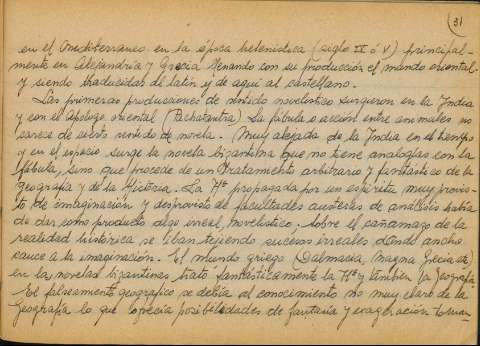 (31)
en el Mediterraneo en la época helenistica (siglo II ó V) principal-
mente en Alejandria y Grecia llenando con su producción el mundo oriental
y siendo traducidas al latin y de aqui al castellano.
Las primeras producciones de sentido novelistico surgieron en la India
y con el apologo oriental (Pachatantra) La fabula o acción entre animales no
carece de cierto sentido de novela. Muy alejada de la India en el tiempo
y en el espacio surge la novela bizantina que no tiene analogías con la
fábula, sino que procede de un tratamiento arbitrario y fantástico de la
geografia y de la Historia. La Hª propagada por un espiritu muy provis-
to de imaginación y desprovisto de facultades austeras de análisis habia
de dar como producto algo irreal, novelistico. Sobre el cañamazo de la
realidad histórica se iban tejiendo sucesos irreales dando ancho
cauce a la imaginación. El mundo griego (Dalmacia, Magna Grecia etc)
en las novelas bizantinas trató fantásticamente la Hª y tambien la geografia
El falseamiento geografico se debia al conocimiento no muy claro de la
Geografia lo que ofrecia posibilidades de fantasia y exageracion